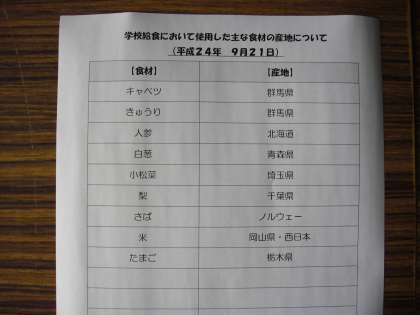 学校給食において使用した主な食材の産地について
（平成２４年　９月２１日）
【食材】　【産地】
キャベツ　群馬県
きゅうり　群馬県
人参　北海道
白葱　青森県
小松菜　埼玉県
梨　千葉県
さば　ノルウェー
米　岡山県・西日本
たまご　栃木県